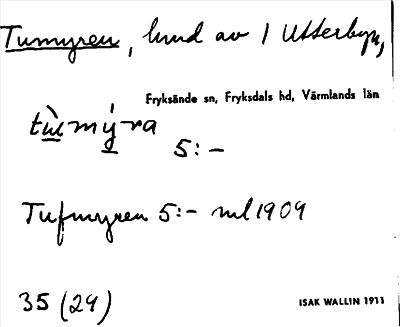 Tumyren, lund av 1 Utterbyn,
Fryksände sn, Fryksdals hd, Värmlands län
tùmýra
5:-
Tufmyren 5:- ml 1909
35 (29)
ISAK WALLIN 1911